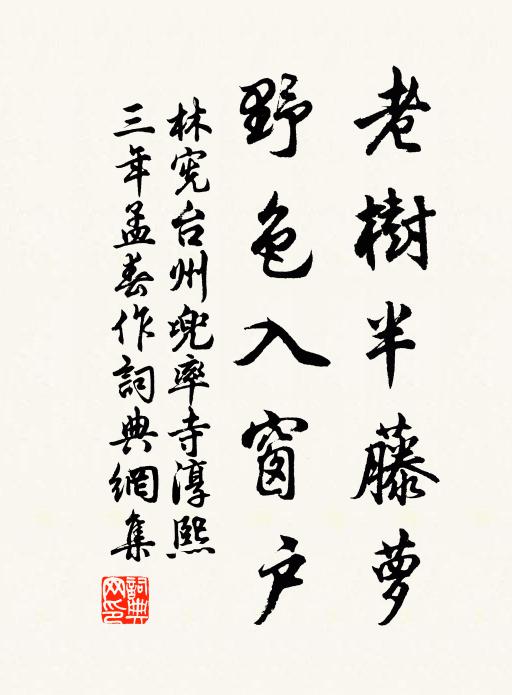 老樹半藤夢
野色入窗户
林宪台州兜率寺淳熙
三年孟春作詞典網集
詞典网印